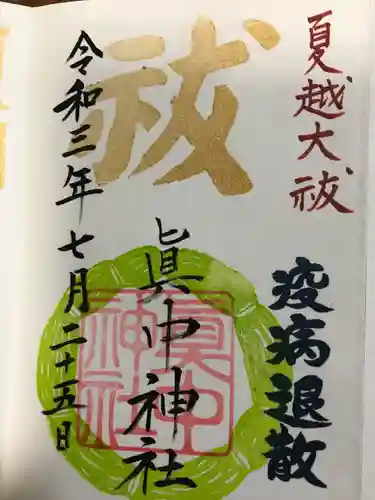 夏越大祓
疫病退散
祓
眞中神社
眞中神社
令和三年七月二十五日